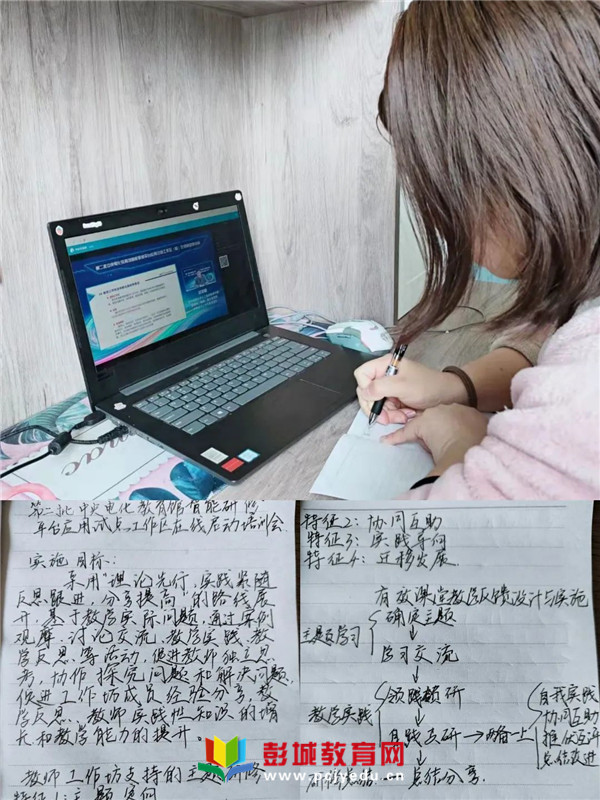 第二批中央电化教育馆智能研修
平台应用试点工作区在线启动培训会
实施目标:
采用"理论先行,实践紧随
反思跟进,分享提高"的路线展
开,基于教学实际问题,通过案例
观摩、讨论交流、教学实践、教
学反思等活动,促进教师独立思
考,协作探究问题和解决问题,
促进工作坊成员经验分享,教
学反思、教师实践性知识的增
长和教学能力的提升。
教师工作坊支持的主题研修
特征1:主题导向
特征2:协同互助
特征3:实践导向
特征4:迁移发展
有效课堂教学反馈设计与实施
主题学习
确定主题
学习交流
教学实践
领践
研
自践互研→两备一上
自我实践
协同互助
推优互评
总结改进
总结分享.
彭城教育网
www.pcjyedu.cn